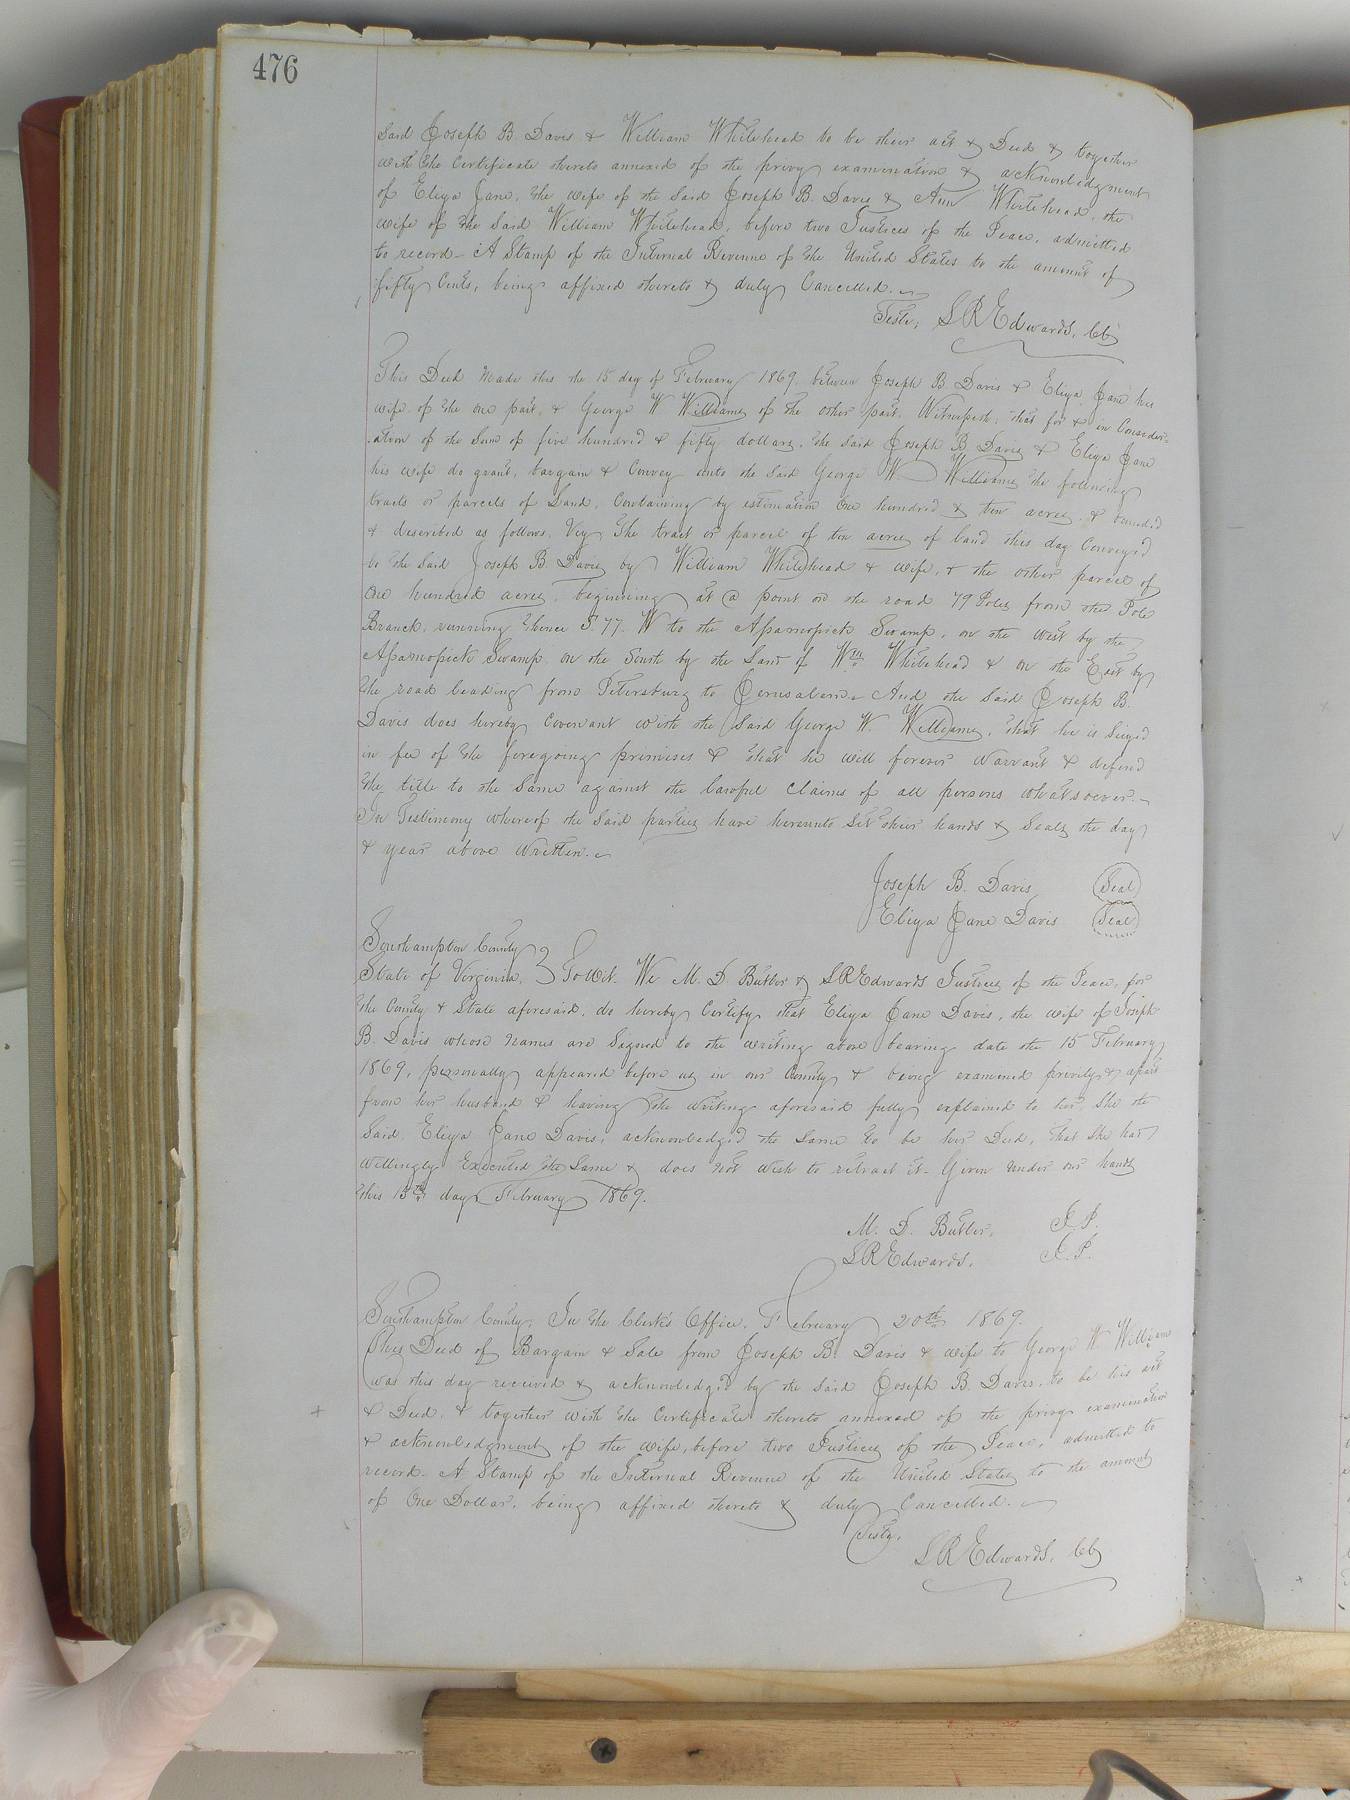 476
Said Joseph B Davis & William Whitehead to be their act & Deed & together
with the Certificate thereto annexed of the privy examination & acknowledgment
of Eliza Jane, the wife of the Said Joseph B. Davis & Ann Whitehead, the
wife of the Said William Whitehead, before two Justices of the Peace, admitted
to record - A Stamp of the Internal Revenue of the United States to the amount of
fifty Cents, being affixed thereto & duly Cancelled.
Teste, L R Edwards, CC
This Deed made this the 15 day of February 1869, between Joseph B Davis & Eliza Jane his
wife of the one part, & George W Williams of the other part. Witnesseth, that for & in Consider=
ation of the Sum of five hundred & fifty dollars, the Said Joseph B Davis & Eliza Jane
his wife do grant, bargain & Convey unto the Said George W Williams the following
tracts or parcels of Land, Containing by estimation One hundred & ten acres & bounded
& described as follows. Viz The tract or parcel of ten acres of land this day Conveyed
to the Said Joseph B. Davis by William Whitehead & wife, & the other parcel of
One hundred acres, beginning at a point on the road 79 Poles from the Pole
Branch, running thence S. 77. W to the Assamosick Swamp, on the west by the
Assamosick Swamp, on the South by the Land of Wm Whitehead & on the East by
the road leading from Petersburg to Jerusalem - And the Said Joseph B.
Davis does hereby Covenant with the Said George W. Williams, that he is Seized
in fee of the foregoing premises & that he will forever Warrant & defend
the title to the Same against the lawful Claims of all persons whatsoever.
In Testimony whereof the Said parties have hereunto Set their hands & Seals the day
& year above written.
Joseph B. Davis Seal
Eliza Jane Davis Seal
Southampton County
State of Virginia, To wit. We M. D. Butler & L R Edwards Justices of the Peace, for
the County & State aforesaid, do hereby Certify that Eliza Jane Davis, the wife of Joseph
B. Davis whose names are Signed to the writing above bearing date the 15 February
1869, personally appeared before us in our County & being examined privily & apart
from her husband & having the writing aforesaid fully explained to her She the
Said Eliza Jane Davis, acknowledged the Same to be her Deed, that She had
willingly Executed the Same & does not wish to retract it - Given under our hands
this 15th day February 1869.
M. D. Butler, J. P.
L R Edwards, J. P.
Southampton County, In the Clerk's Office, February 20th 1869.
This Deed of Bargain & Sale from Joseph B. Davis & wife to George W. Williams
was this day received & acknowledged by the Said Joseph B. Davis, to be his act
& Deed, & together with the Certificate thereto annexed of the privy examination
& acknowledgment of the wife, before two Justices of the Peace, admitted to
record - A Stamp of the Internal Revenue of the United States to the amount
of One Dollar, being affixed thereto & duly Cancelled.
Teste,
L R Edwards, CC